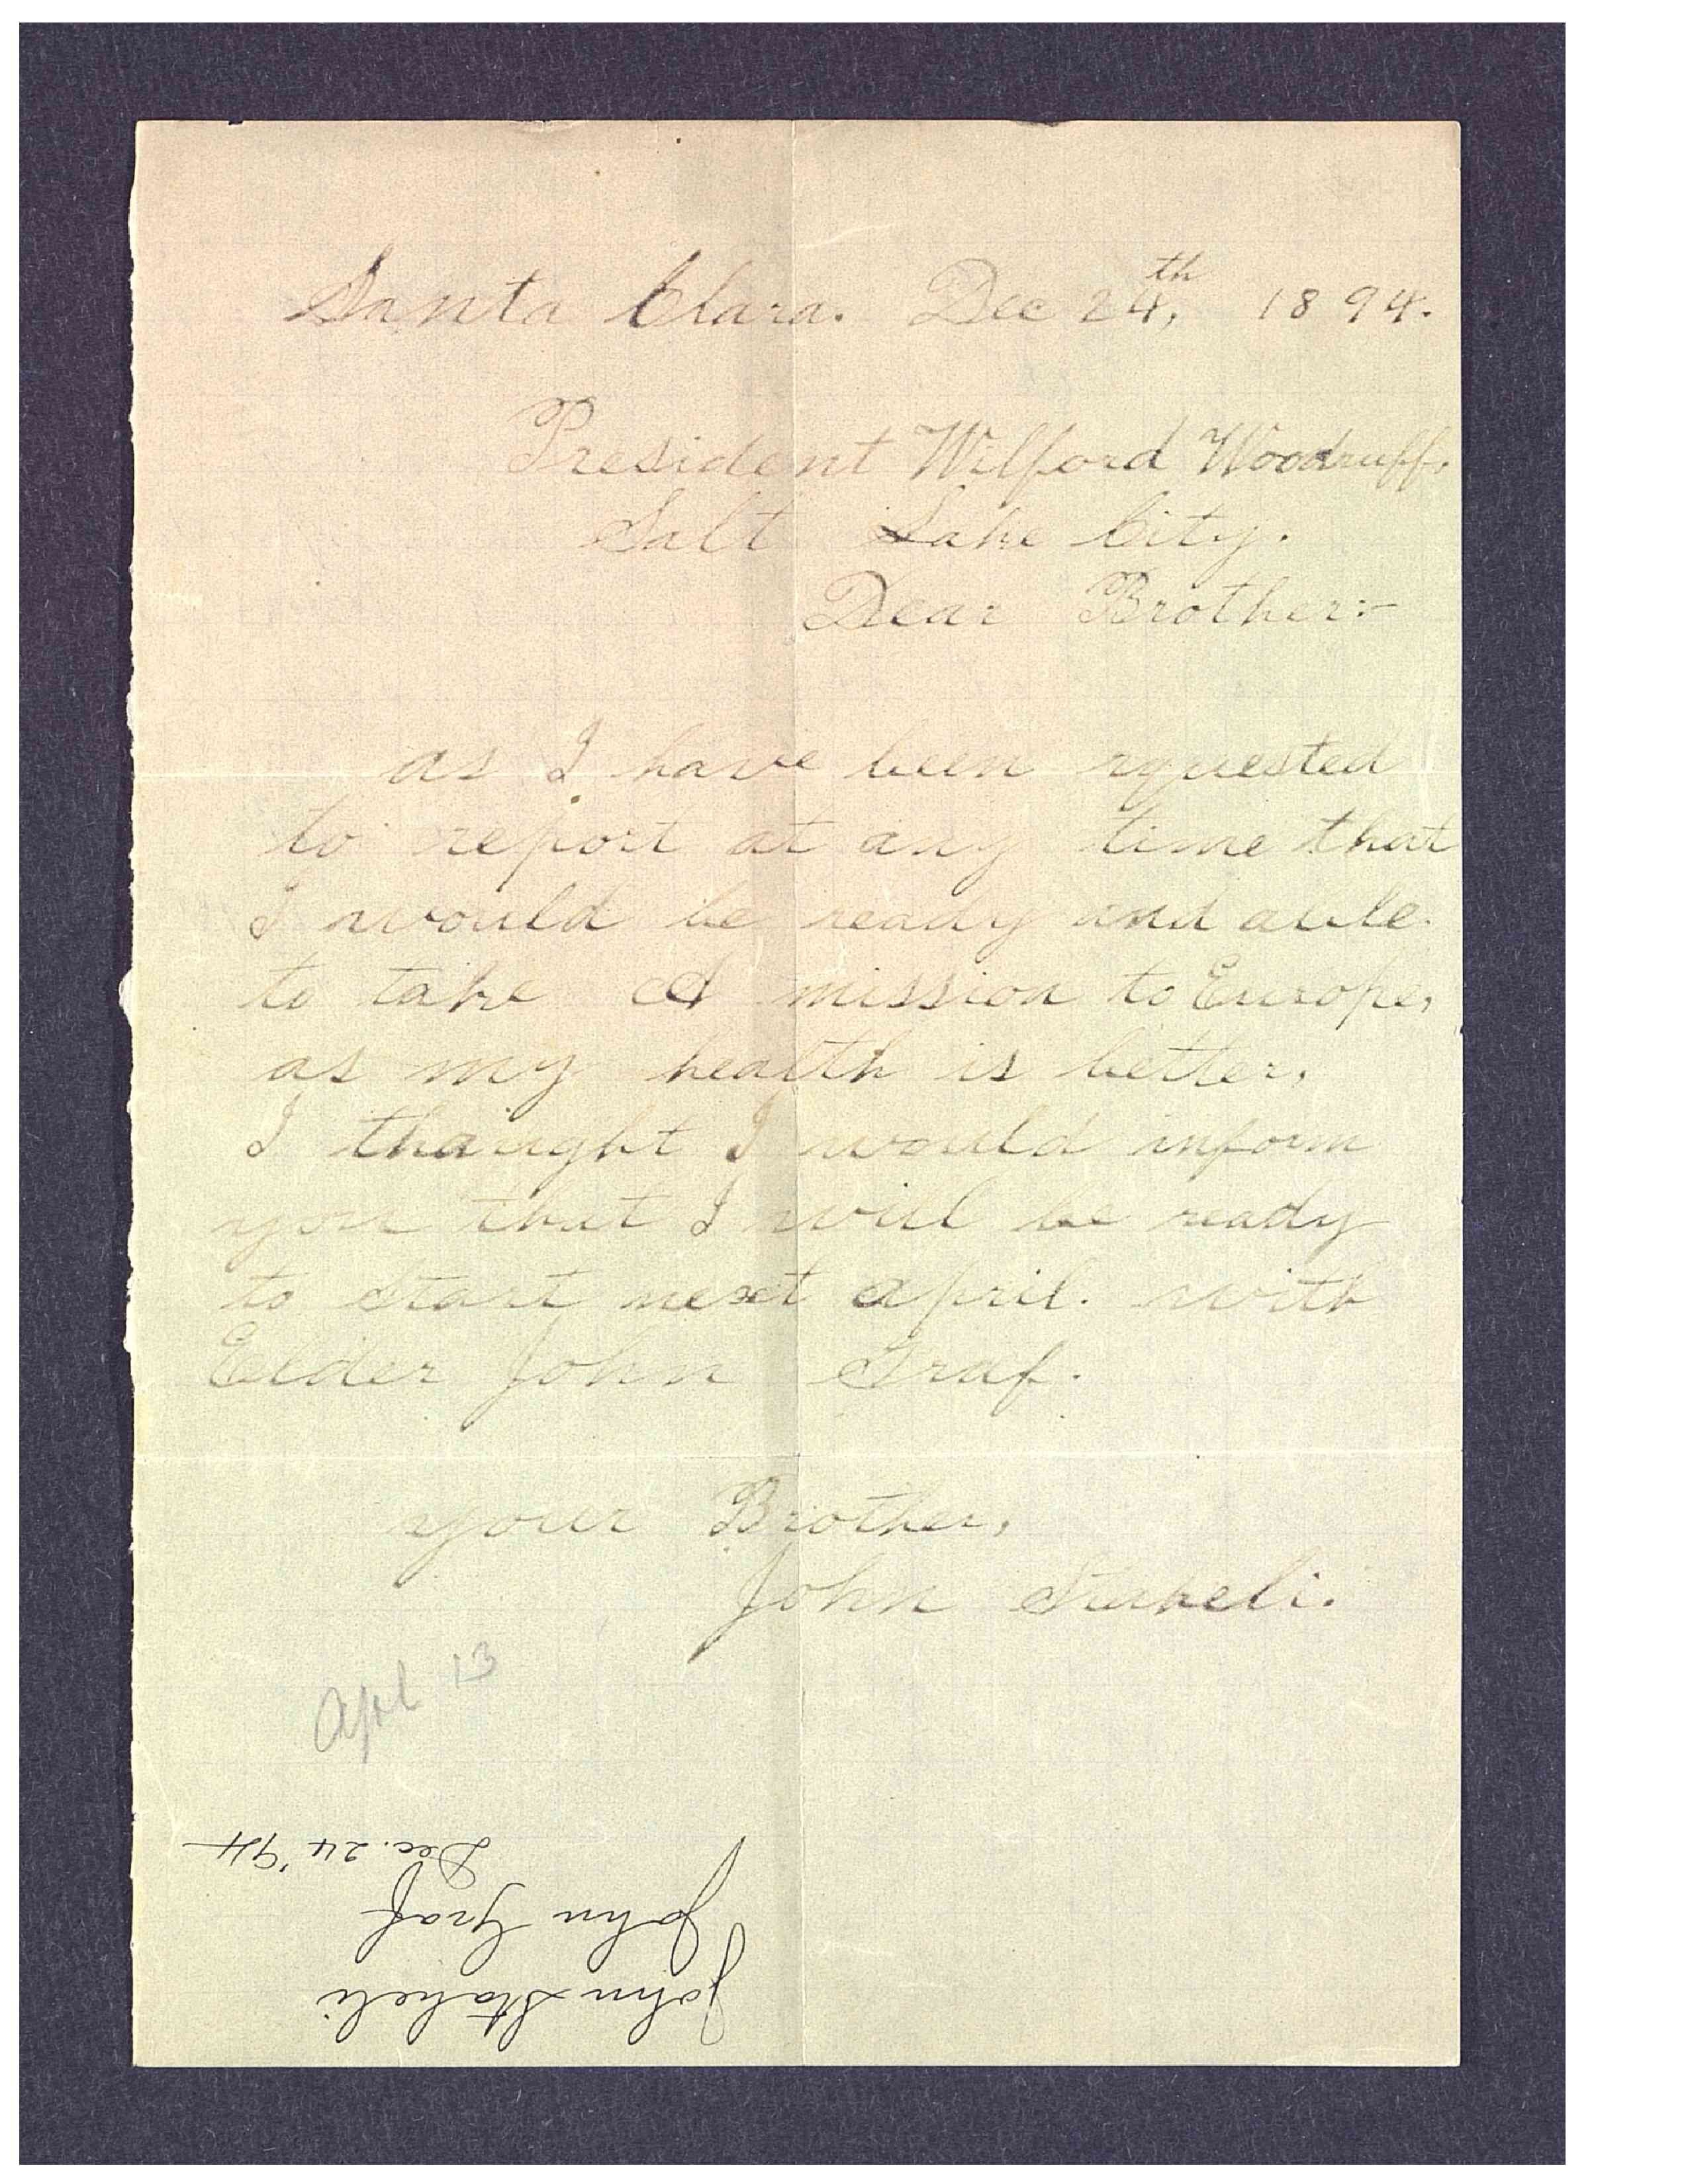 Santa Clara. Dec 24th, 1894.
President Wilford Woodruff.
Salt Lake City.
Dear Brother:-
as I have been rquested
to report at any time that
I would be ready and able.
to take A mission to Europe,
as my health is better,
I thaught I would inform
you that I will be ready
to start next april. with
Elder John Graf.
your Brother,
John Staheli.
Apl 13
John Staheli
John Graf
Dec. 24 '94